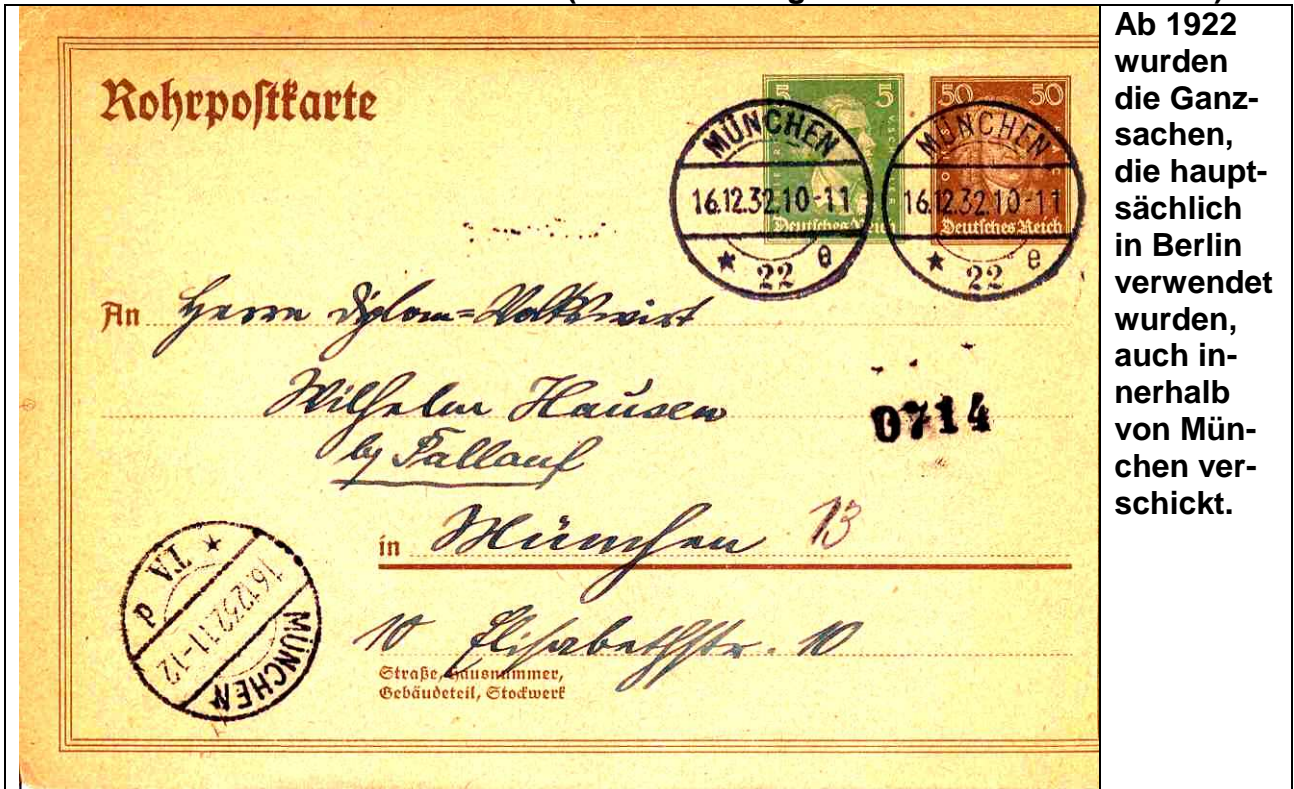 Rohrpostkarte
5 5
50 50
Deutsches Reich
Deutsches Reich
MÜNCHEN
16.12.32.10-11
* 22 e
MÜNCHEN
16.12.32.10-11
* 22 e
An Herrn Diplom=Volkswirt
Wilhelm Hausen
by Fallauf
0714
in München 13
10 Elisabethstr. 10
Straße, Hausnummer,
Gebäudeteil, Stockwerk
p TA *
16.12.32.11-12
MÜNCHEN
Ab 1922
wurden
die Ganz-
sachen,
die haupt-
sächlich
in Berlin
verwendet
wurden,
auch in-
nerhalb
von Mün-
chen ver-
schickt.